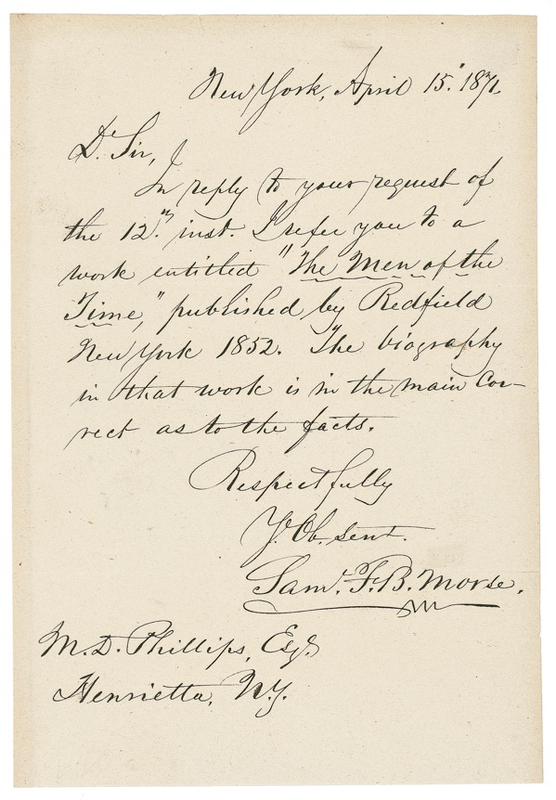 New York, April 15. 1871.
D. Sir,
In reply to your request of
the 12.th inst. I refer you to a
work entitled "The Men of the
Time," published by Redfield
New York 1852. The biography
in that work is in the main cor-
rect as to the facts.
Respectfully
Yr. Ob. Servt.
Saml. F. B. Morse.
M. D. Phillips, Esqr.
Henrietta, N.Y.